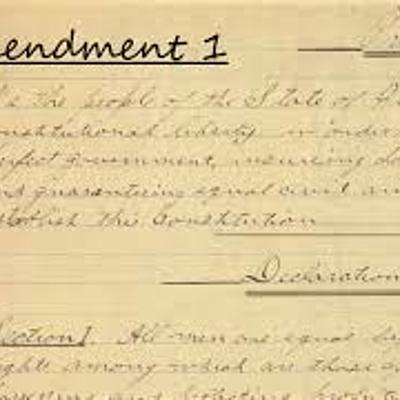 endment 1
the people of the State of
onstitutional liberty in order
rfect government, insuring
nd guaranteeing equal civil an
tablish this Constitution
Declaration
Section 1. All men are equal by
ights among which are those